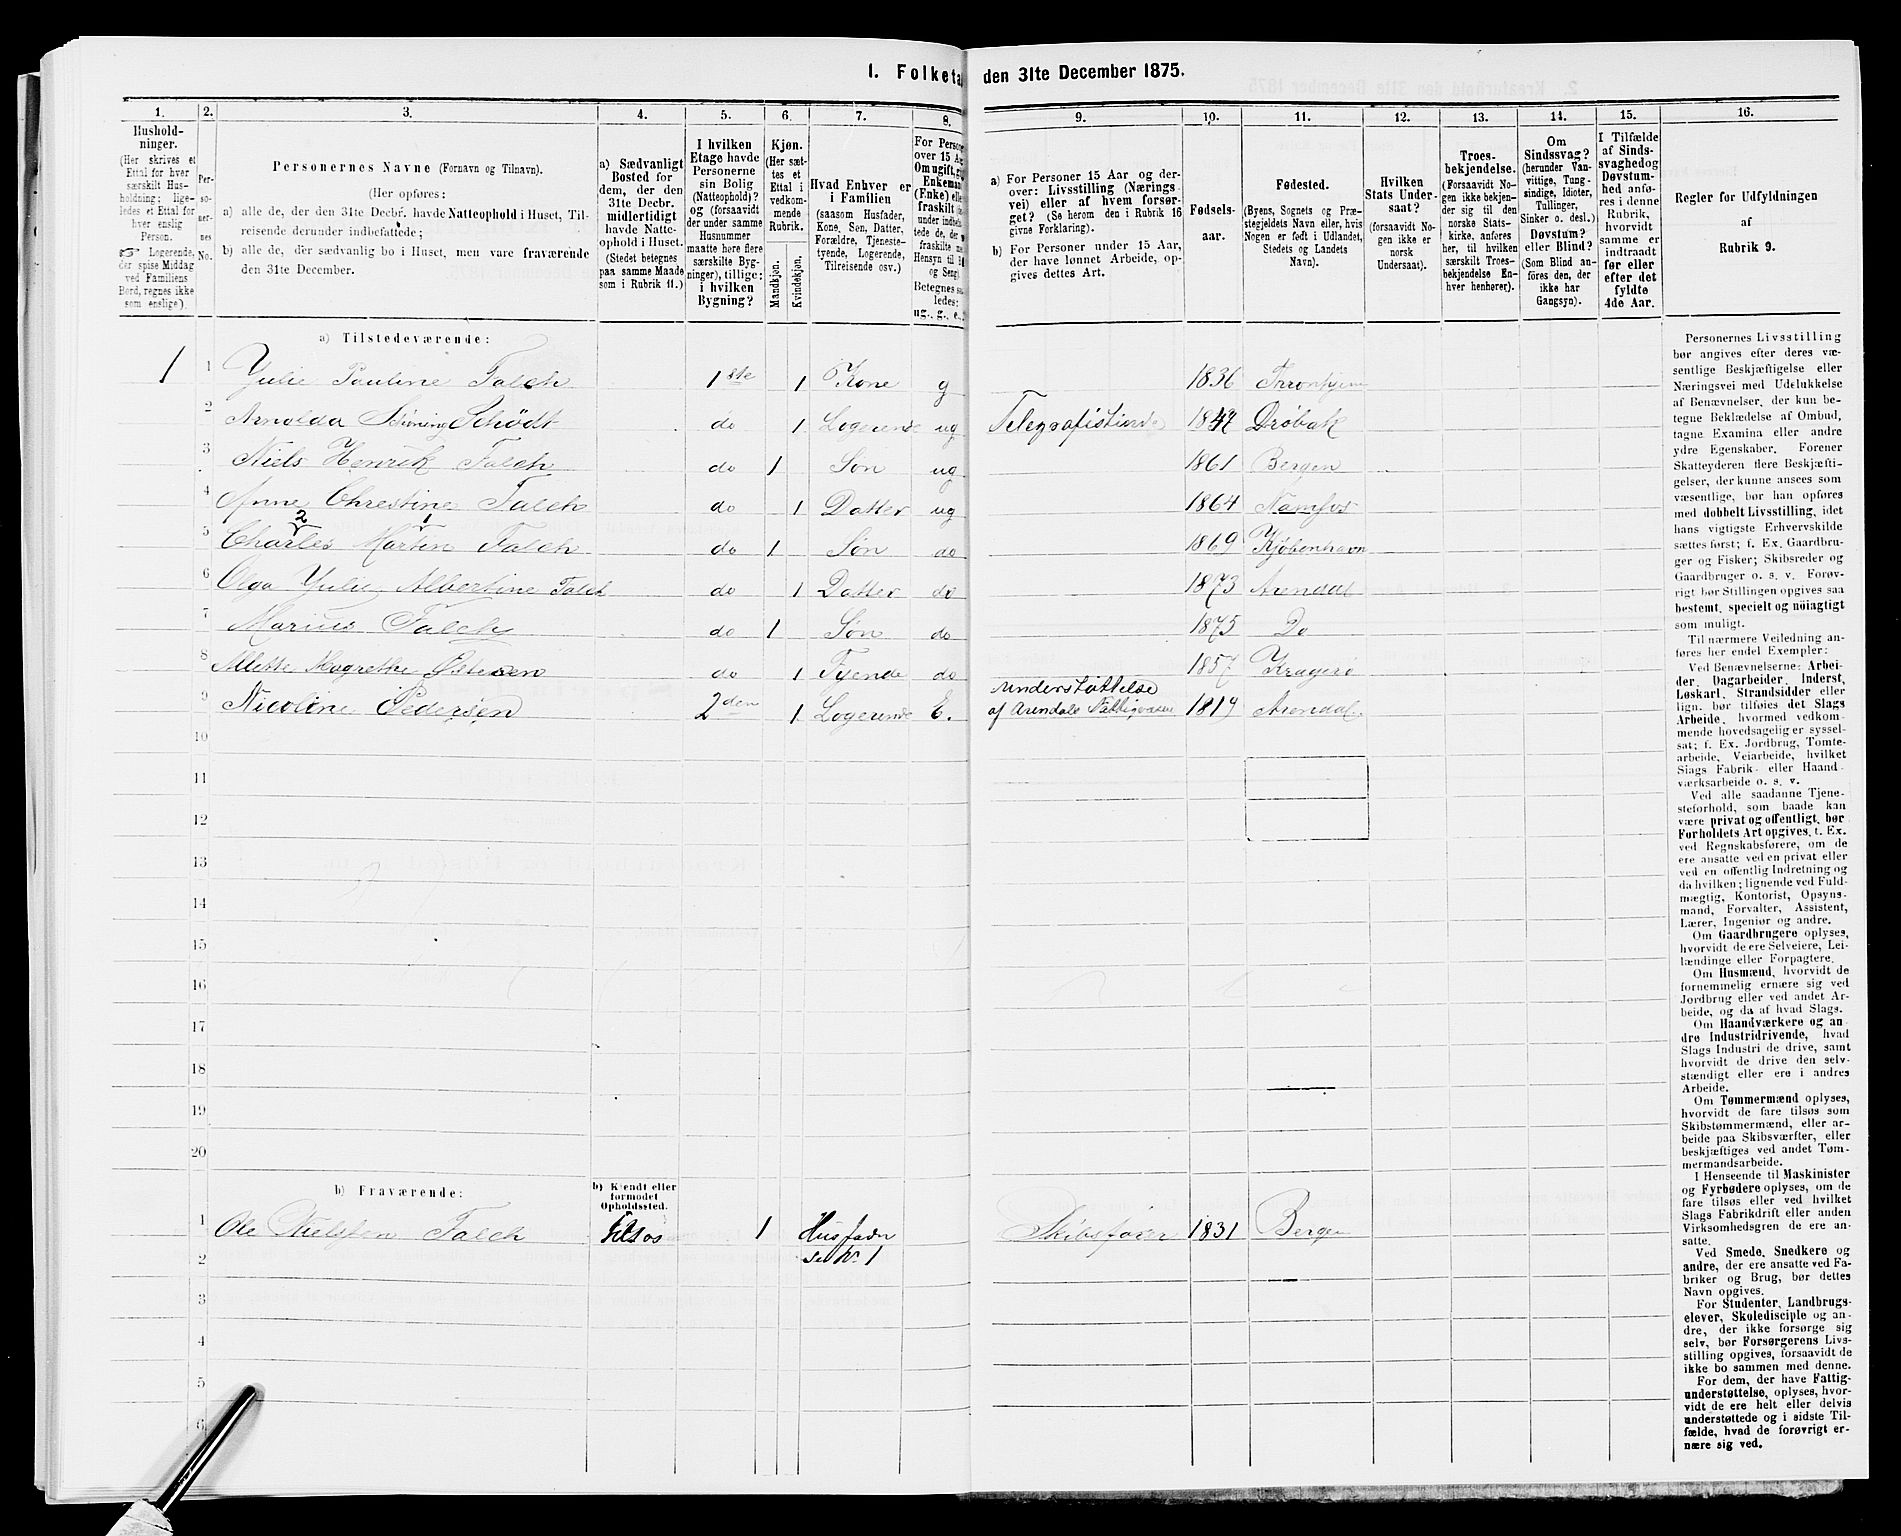 1. Folketa den 31te December 1875.
1.
Hushold-
ninger.
(Her skrives et
Ettal for hver
særskilt Hus-
holdning; lige-
ledes et Ettal for
hver enslig
Person.
☞ Logerende,
der spise Middag
ved Familiens
Bord, regnes ikke
som enslige).
2.
Per-
so-
ner-
nes
No.
3.
Personernes Navne (Fornavn og Tilnavn).
(Her opføres:
a) alle de, der den 31te Decbr. havde Natteophold i Huset, Til-
reisende derunder indbefattede;
b) alle de, der sædvanlig bo i Huset, men vare fraværende
den 31te December.
4.
a) Sædvanligt
Bosted for
dem, der den
31te Decbr.
midlertidigt
havde Natte-
ophold i Huset.
(Stedet betegnes
paa samme Maade
som i Rubrik 11.)
5.
I hvilken
Etage havde
Personerne
sin Bolig
(Natteophold)?
og (forsaavidt
der under samme
Husnummer
maatte høre flere
særskilte Byg-
ninger), tillige:
i hvilken
Bygning?
6.
Kjøn.
(Her sæt-
tes et
Ettal i
vedkom-
mende
Rubrik.
Mandkjøn.
Kvindekjøn.
7.
Hvad Enhver er
i Familien
(saasom Husfader,
Kone, Søn, Datter,
Forældre, Tjeneste-
tyende, Logerende,
Tilreisende osv.)
8.
For Person
over 15 Aa
Om ugift, g
Enkeman
(Enke) elle
fraskilt
under indbe
tede de,
fraskilte
Hensyn til
og Seng
Betegnes sa
ledes:
ug., g., e.,
9.
a) For Personer 15 Aar og der-
over: Livsstilling (Nærings-
vei) eller af hvem forsør-
get? (Se herom den i Rubrik 16
givne Forklaring).
b) For Personer under 15 Aar,
der have lønnet Arbeide, op-
gives dettes Art.
10.
Fødsels-
aar.
11.
Fødested.
(Byens, Sognets og Præ-
stegjeldets Navn eller, hvis
Nogen er født i Udlandet,
Stedets og Landets
Navn).
12.
Hvilken
Stats Under-
saat?
(forsaavidt No-
gen ikke er
norsk
Undersaat).
13.
Troes-
bekjendelse.
(Forsaavidt No-
gen ikke bekjen-
der sig til den
norske Stats-
kirke, anføres
her, til hvilken
særskilt Troes-
bekjendelse En-
hver henhører).
14.
Om
Sindssvag?
(herunder Van-
vittige, Tung-
sindige, Idioter,
Tullinger,
Sinker o. desl.)
Døvstum?
eller Blind?
(Som Blind an-
føres den, der
ikke har
Gangsyn).
15.
I Tilfælde
af Sinds-
svaghed og
Døvstum-
hed anfø-
res i denne
Rubrik,
hvorvidt
samme er
indtraadt
før eller
efter det
fyldte
4de Aar.
16.
Regler for Udfyldningen
af
Rubrik 9.
a) Tilstedeværende:
1 1 Yulie Pauline Falch 1ste 1 Kone g 1836 Thronhjem
2 Arnolda Schiødt do 1 Logerende ug 1847 Drøbak
3 Niels Henrik Falch do 1 Søn ug 1861 Bergen
4 Anne Chrestine Falch do 1 Datter ug 1864 Namsos
2 1
5 Charles Martin Falch do 1 Søn do 1869 Kjøbenhavn
6 Olga Yulie Albertine Falch do 1 Datter do 1873 Arendal
7 Marius Falch do 1 Søn do 1875 Do
8 Mette Magrethe do 1 Tyende do 1857 Kragerø
9 Nicoline Pedersen 2den 1 Logerende E. Understøttelse af Arendals Fattigvæsen 1819 Arendal
10
11
12
13
14
15
16
17
18
19
20
b) Fraværende:
b) Kjendt eller
formodet
Opholdssted.
1 Ole Nielsen Falch 1 Husfader Skibsfører 1831 Bergen
2 se No 1
3
4
5
6
Personernes Livsstilling
bør angives efter deres væ-
sentlige Beskjæftigelse eller
Næringsvei med Udelukkelse
af Benævnelser, der kun be-
tegne Beklædelse af Ombud,
tagne Examina eller andre
ydre Egenskaber. Forener
Skatteyderen flere Beskjæfti-
gelser, der kunne ansees som
væsentlige, bør han opføres
med dobbelt Livsstilling, idet
hans vigtigste Erhvervskilde
sættes først; f. Ex. Gaardbru-
ger og Fisker; Skibsreder og
Gaardbruger o. s. v. Forøv-
rigt bør Stillingen opgives saa
bestemt, specielt og nøiagtigt
som muligt.
Til nærmere Veiledning an-
føres her endel Exempler:
Ved Benævnelserne: Arbei-
der, Dagarbeider, Inderst,
Løskarl, Strandsidder eller
lign. bør tilføies det Slags
Arbeide, hvormed vedkom-
mende hovedsagelig er syssel-
sat; f. Ex. Jordbrug, Tomte-
arbeide, Veiarbeide, hvilket
Slags Fabrik- eller Haand-
værksarbeide o. s. v.
Ved alle saadanne Tjene-
steforhold, som baade kan
være privat og offentligt, bør
Forholdets Art opgives, t. Ex.
ved Regnskabsførere, om de
ere ansatte ved en privat eller
ved en offentlig Indretning og
da hvilken; lignende ved Fuld-
mægtig, Kontorist, Opsyns-
mand, Forvalter, Assistent,
Lærer, Ingeniør og andre.
Om Gaardbrugere oplyses,
hvorvidt de ere Selveiere, Lei-
lændinge eller Forpagtere.
Om Husmænd, hvorvidt de
fornemmelig ernære sig ved
Jordbrug eller ved andet Ar-
beide, og da af hvad Slags.
Om Haandværkere og an-
dre Industridrivende, hvad
Slags Industri de drive, samt
hvorvidt de drive den selv-
stændigt eller ere i andres
Arbeide.
Om Tømmermænd oplyses,
hvorvidt de fare tilsøs som
Skibstømmermænd, eller ar-
beide paa Skibsværfter, eller
beskjæftiges ved andet Tøm-
mermandsarbeide.
I Henseende til Maskinister
og Fyrbødere oplyses, om de
fare tilsøs eller ved hvilket
Slags Fabrikdrift eller anden
Virksomhedsgren de ere an-
satte.
Ved Smede, Snedkere og
andre, der ere ansatte ved Fa-
briker og Brug, bør dettes
Navn opgives.
For Studenter, Landbrugs-
elever, Skoledisciple og an-
dre, der ikke forsørge sig
selv, bør Forsørgerens Livs-
stilling opgives, forsaavidt de
ikke bo sammen med denne.
For dem, der have Fattig-
understøttelse, oplyses, hvor-
vidt de ere helt eller delvis
understøttede og i sidste Til-
fælde, hvad de forøvrigt er-
nære sig ved.